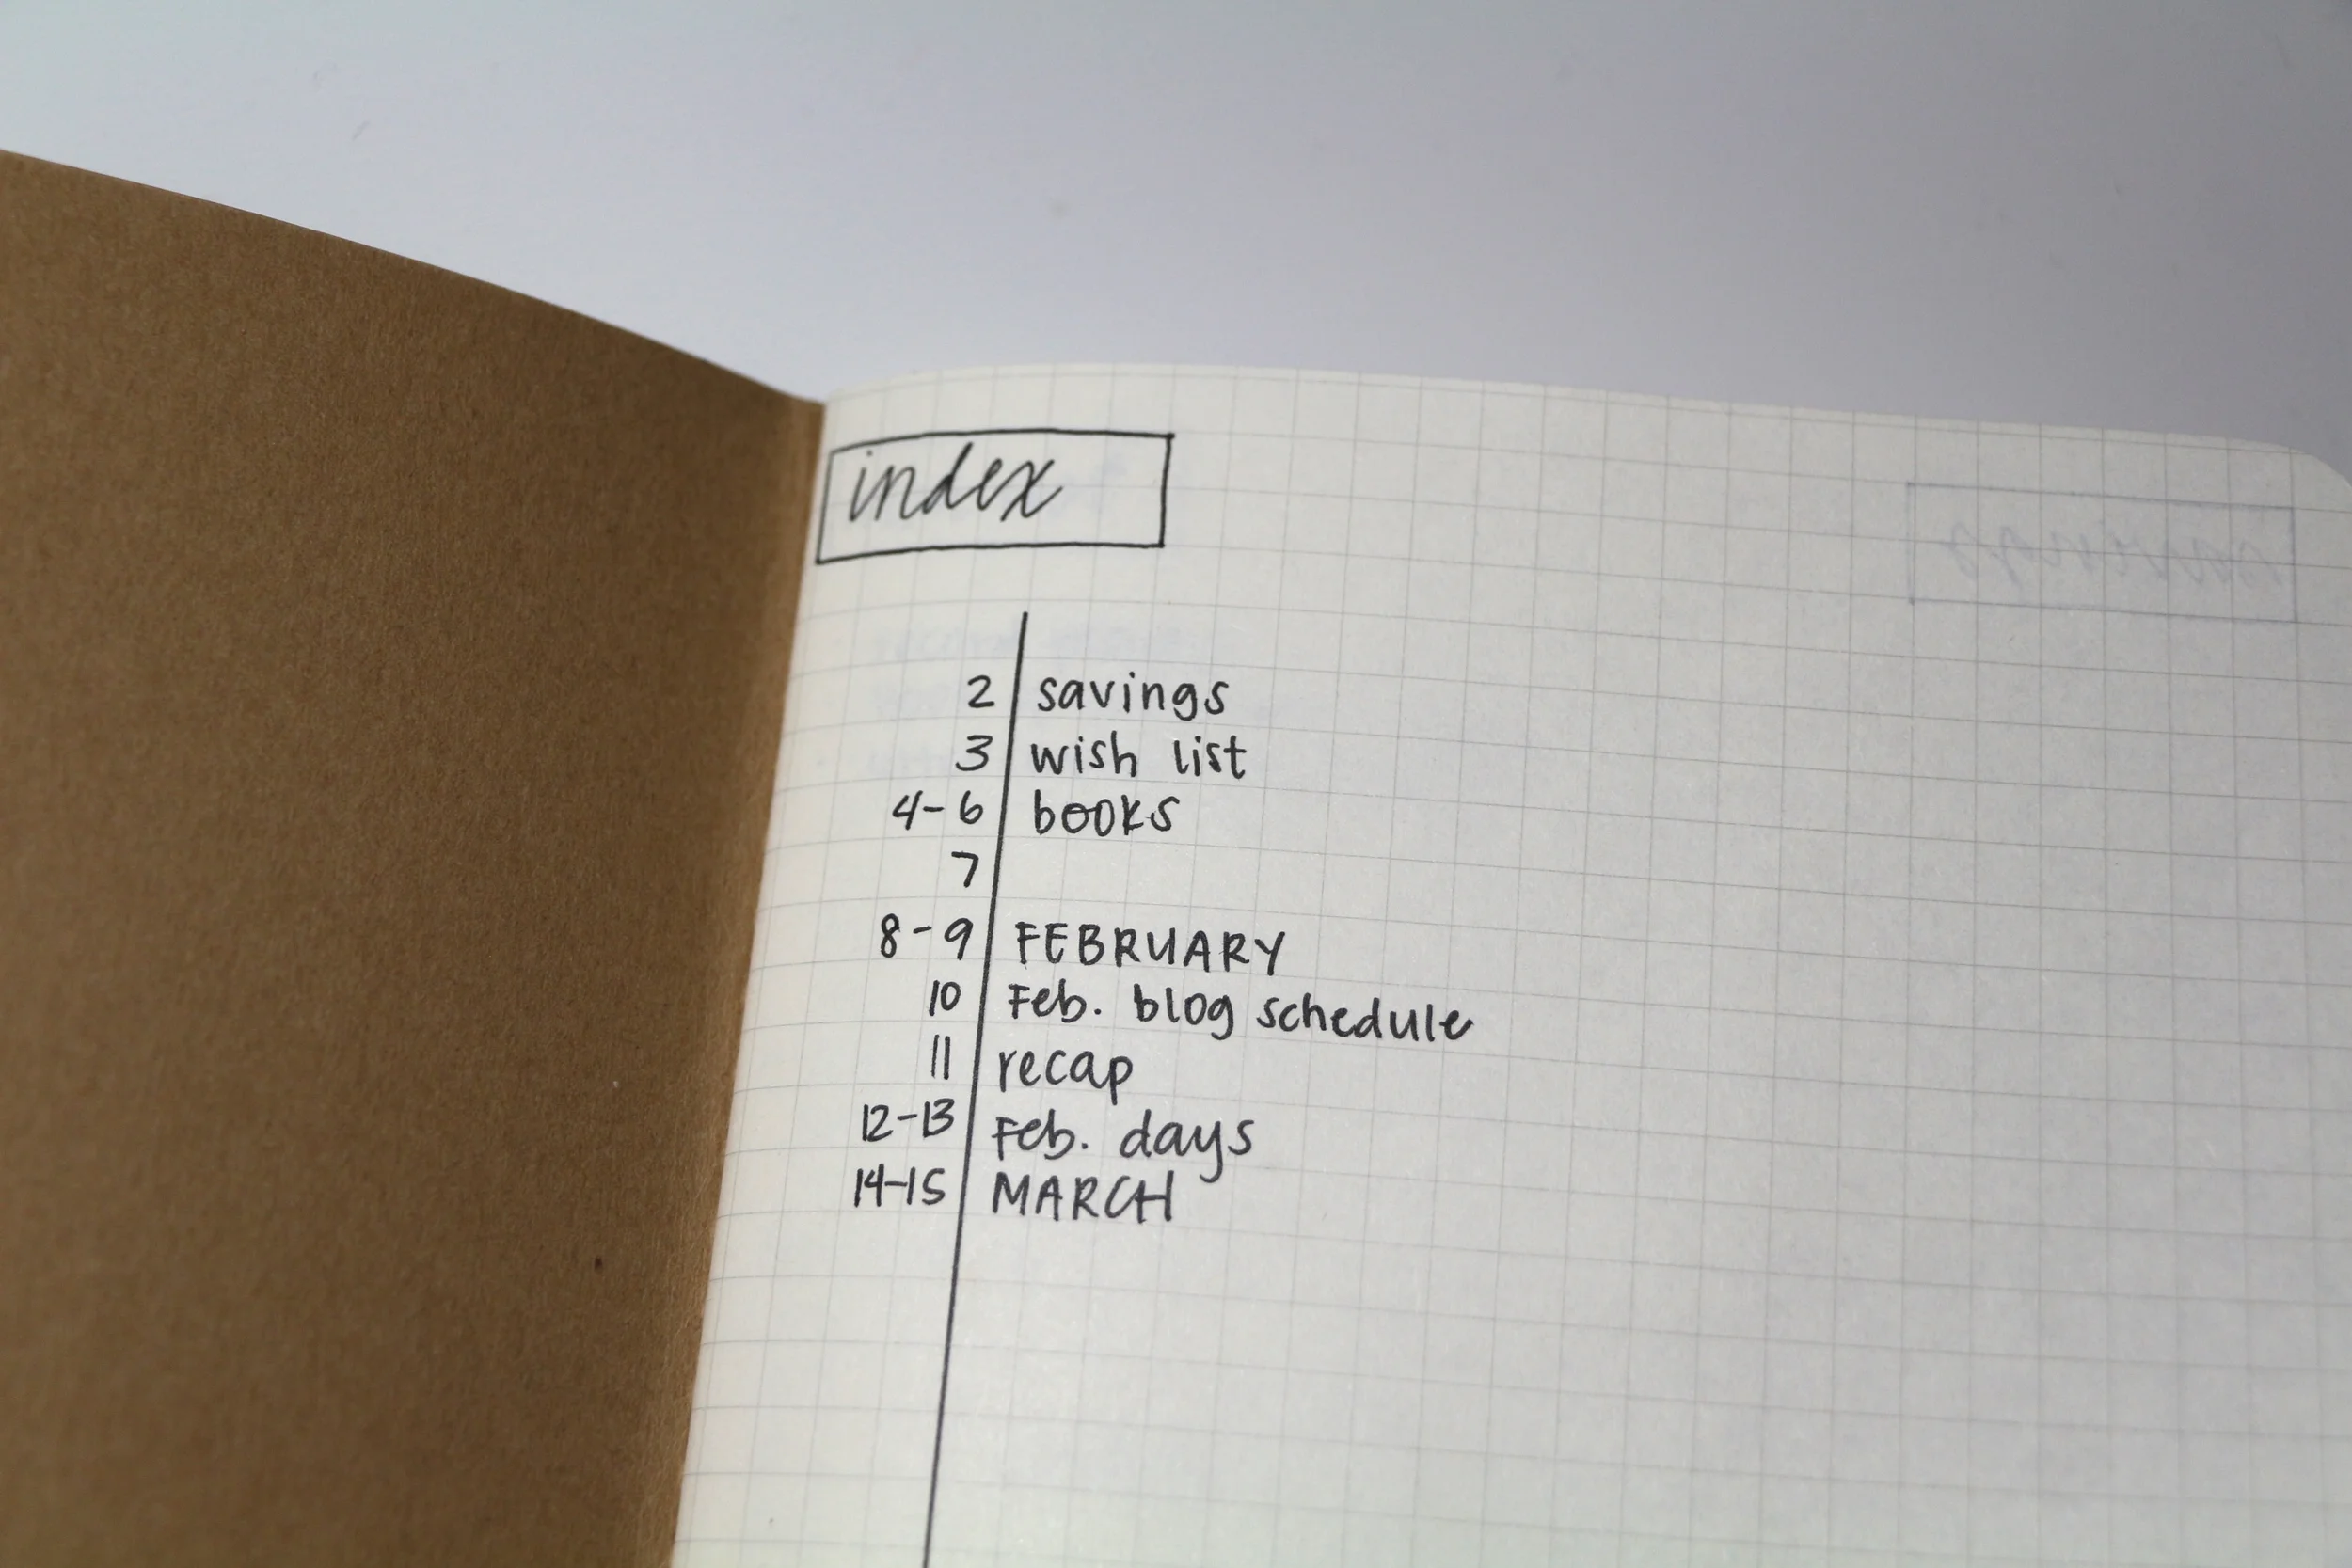 index
2 savings
3 wish list
4-6 books
7
8-9 FEBRUARY
10 Feb. blog schedule
11 recap
12-13 Feb. days
14-15 MARCH